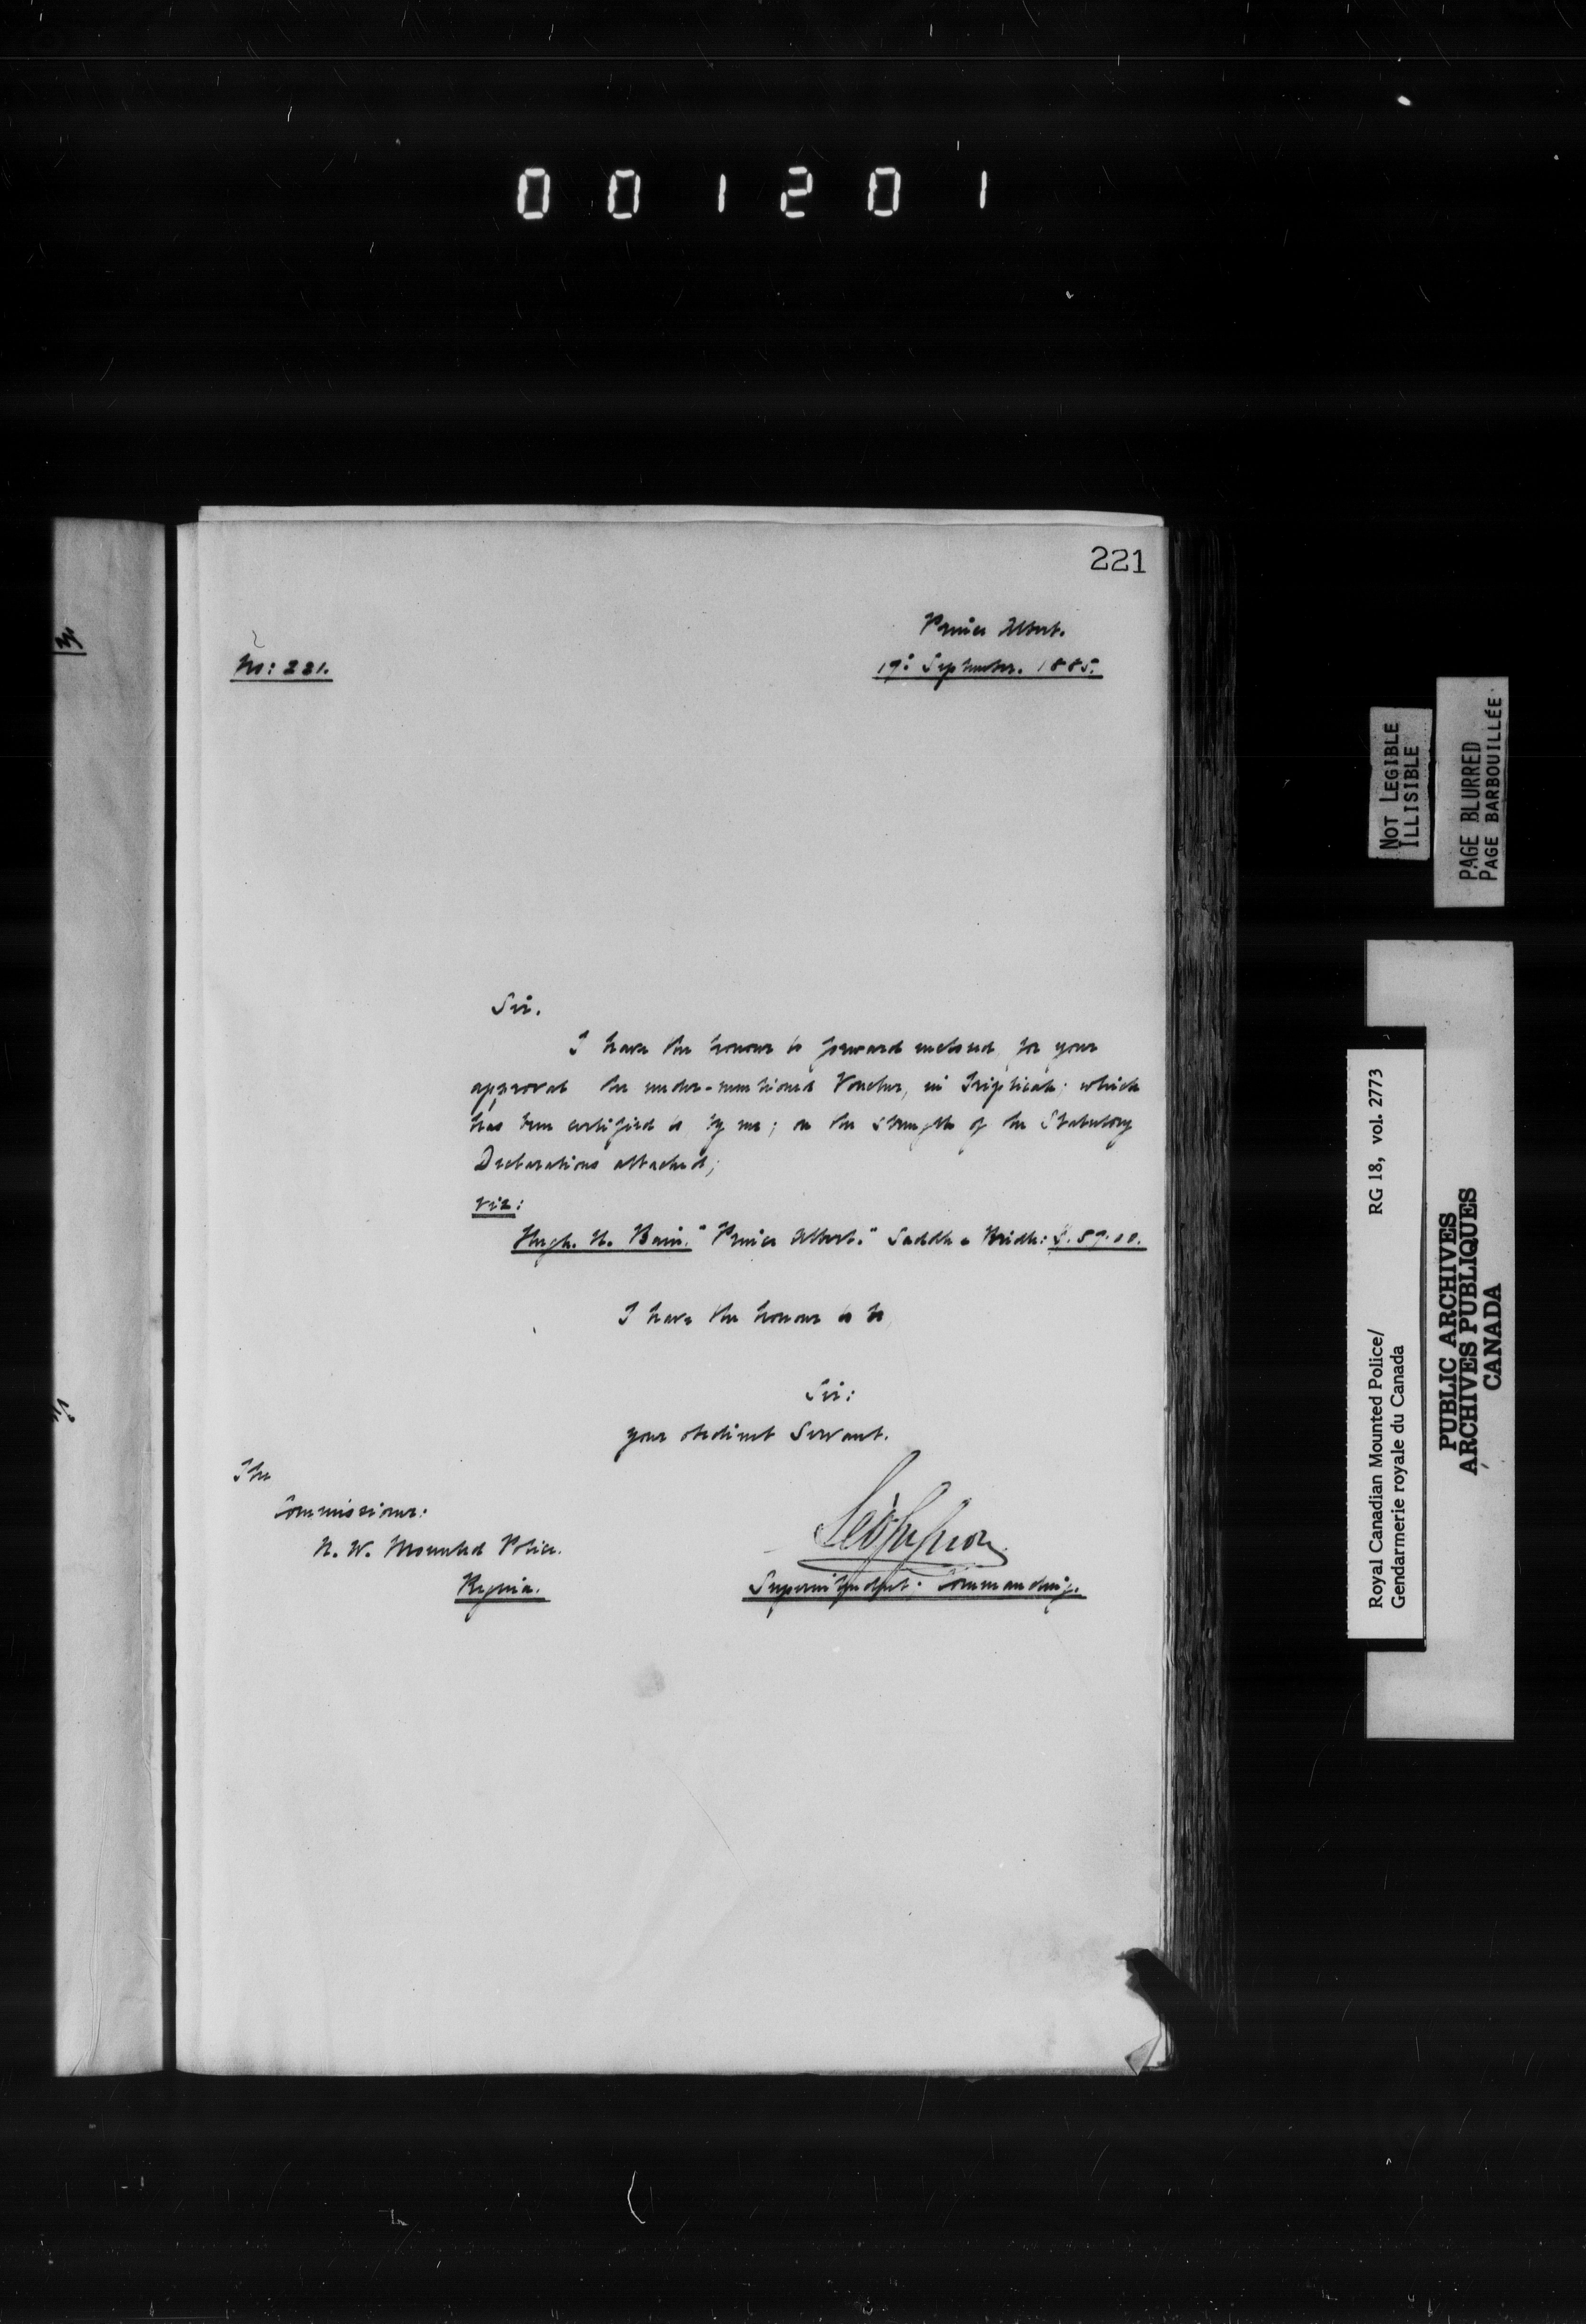 001201
221
Prince Albert.
No: 221.
19: September. 1885.
Sir.
I have the honour to forward enclosed, for your
approval the under-mentioned Voucher, in Triplicate; which
has been certified to by me; on the strength of the Statutory
Declarations attached;
viz:
Hugh. Bain. "Prince Albert." Saddle & Bridle:
I have the honour to be
Sir:
your obedient Servant.
The
Commissioner:
N. W. Mounted Police.
Regina.
Superintendent; Commanding.
NOT LEGIBLE
ILLISIBLE
PAGE BLURRED
PAGE BARBOUILLÉE
Royal Canadian Mounted Police/ RG 18, vol. 2773
Gendarmerie royale du Canada
PUBLIC ARCHIVES
ARCHIVES PUBLIQUES
CANADA